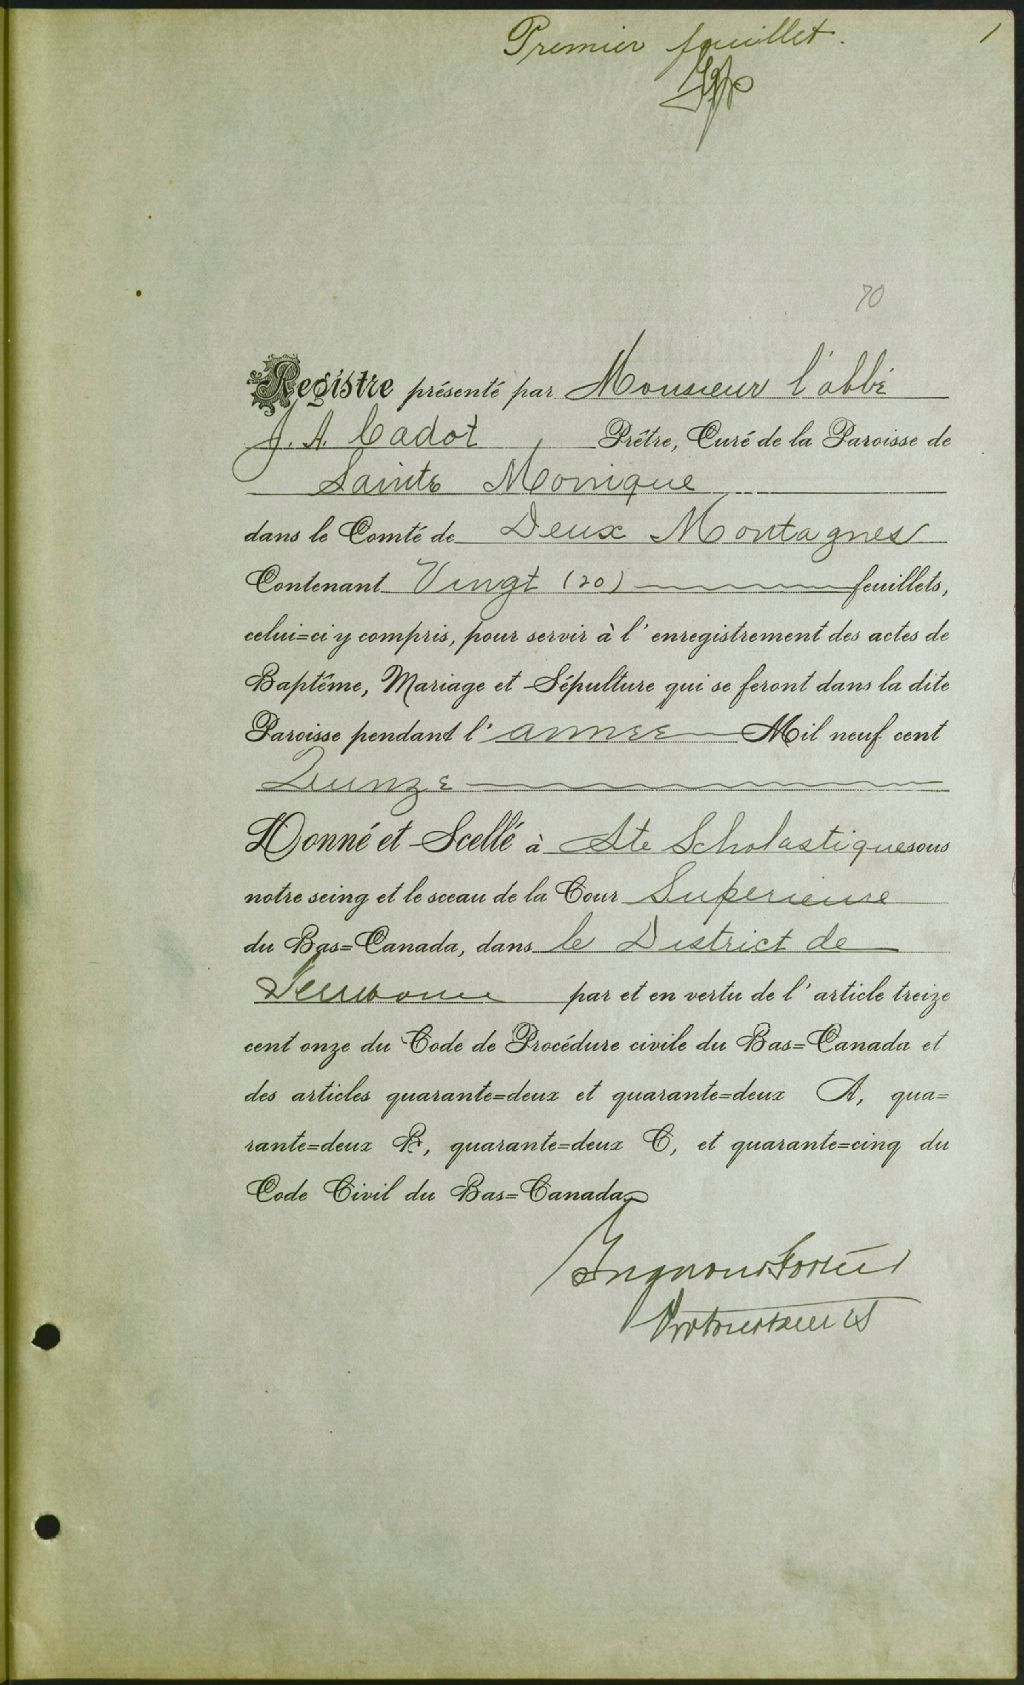 Premier feuillet.
1
70
Registre présenté par Monsieur l'abbé
J. A. Cadot, Prêtre, Curé de la Paroisse de
Sainte Monique
dans le Comté de Deux Montagnes
Contenant Vingt (20) feuillets,
celui=ci y compris, pour servir à l'enregistrement des actes de
Baptême, Mariage et Sépulture qui se feront dans la dite
Paroisse pendant l'année Mil neuf cent
Quinze
Donné et Scellé à Ste Scholastique sous
notre seing et le sceau de la Cour Superieure
du Bas=Canada, dans le District de
Terrebonne par et en vertu de l'article treize
cent onze du Code de Procédure civile du Bas=Canada et
des articles quarante=deux et quarante=deux A, qua=
rante=deux B, quarante=deux C, et quarante=cinq du
Code Civil du Bas=Canada.